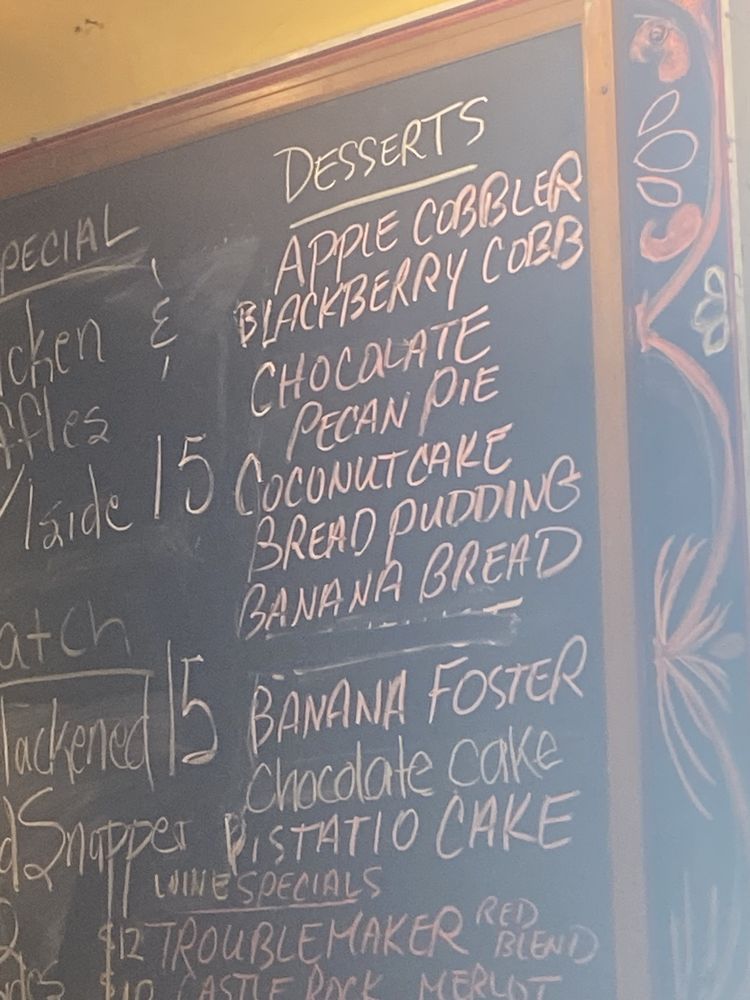 DESSERTS
APPLE COBBLER
BLACKBERRY COBB
CHOCOLATE
PECAN PIE
COCONUT CAKE
BREAD PUDDING
BANANA BREAD
BANANA FOSTER
Chocolate cake
PISTATIO CAKE
PECIAL
cken &
ffles
/1side 15
atch
lackened 15
dSnapper
WINE SPECIALS
$12 TROUBLEMAKER RED BLEND
$10 CASTLE ROCK MERLOT